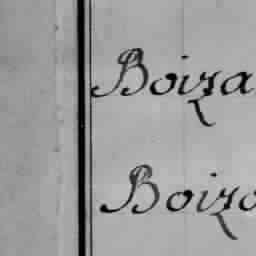 Boiza
Boizo